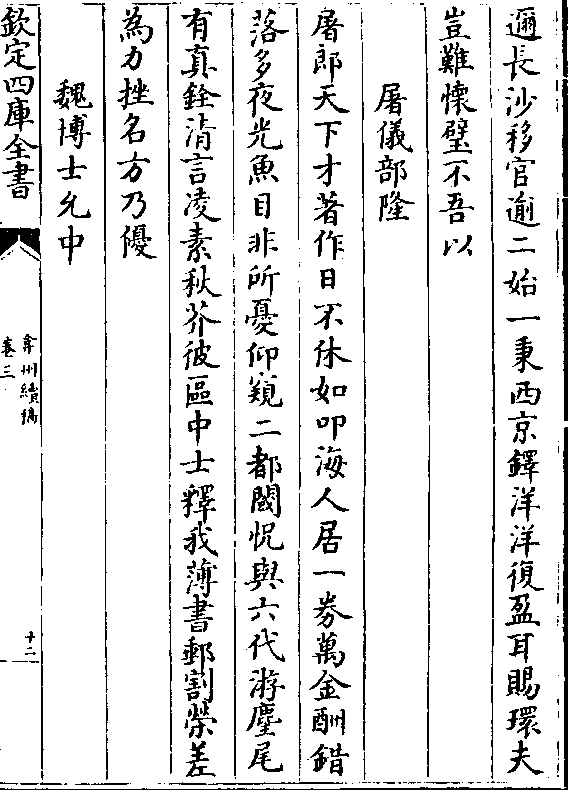 邇長沙移官逾二始一秉西京鐸洋洋復盈耳賜環夫
豈難懷璧不吾以
屠儀部隆
屠郎天下才著作日不休如叩海人居一劵萬金酬錯
落多夜光魚目非所憂仰窺二都閎怳與六代游麈尾
有真銓清言凌素秋芥彼區中士釋我薄書郵割榮差
為力挫名方乃優
魏博士允中
欽定四庫全書
弇州續稿
卷三
十二